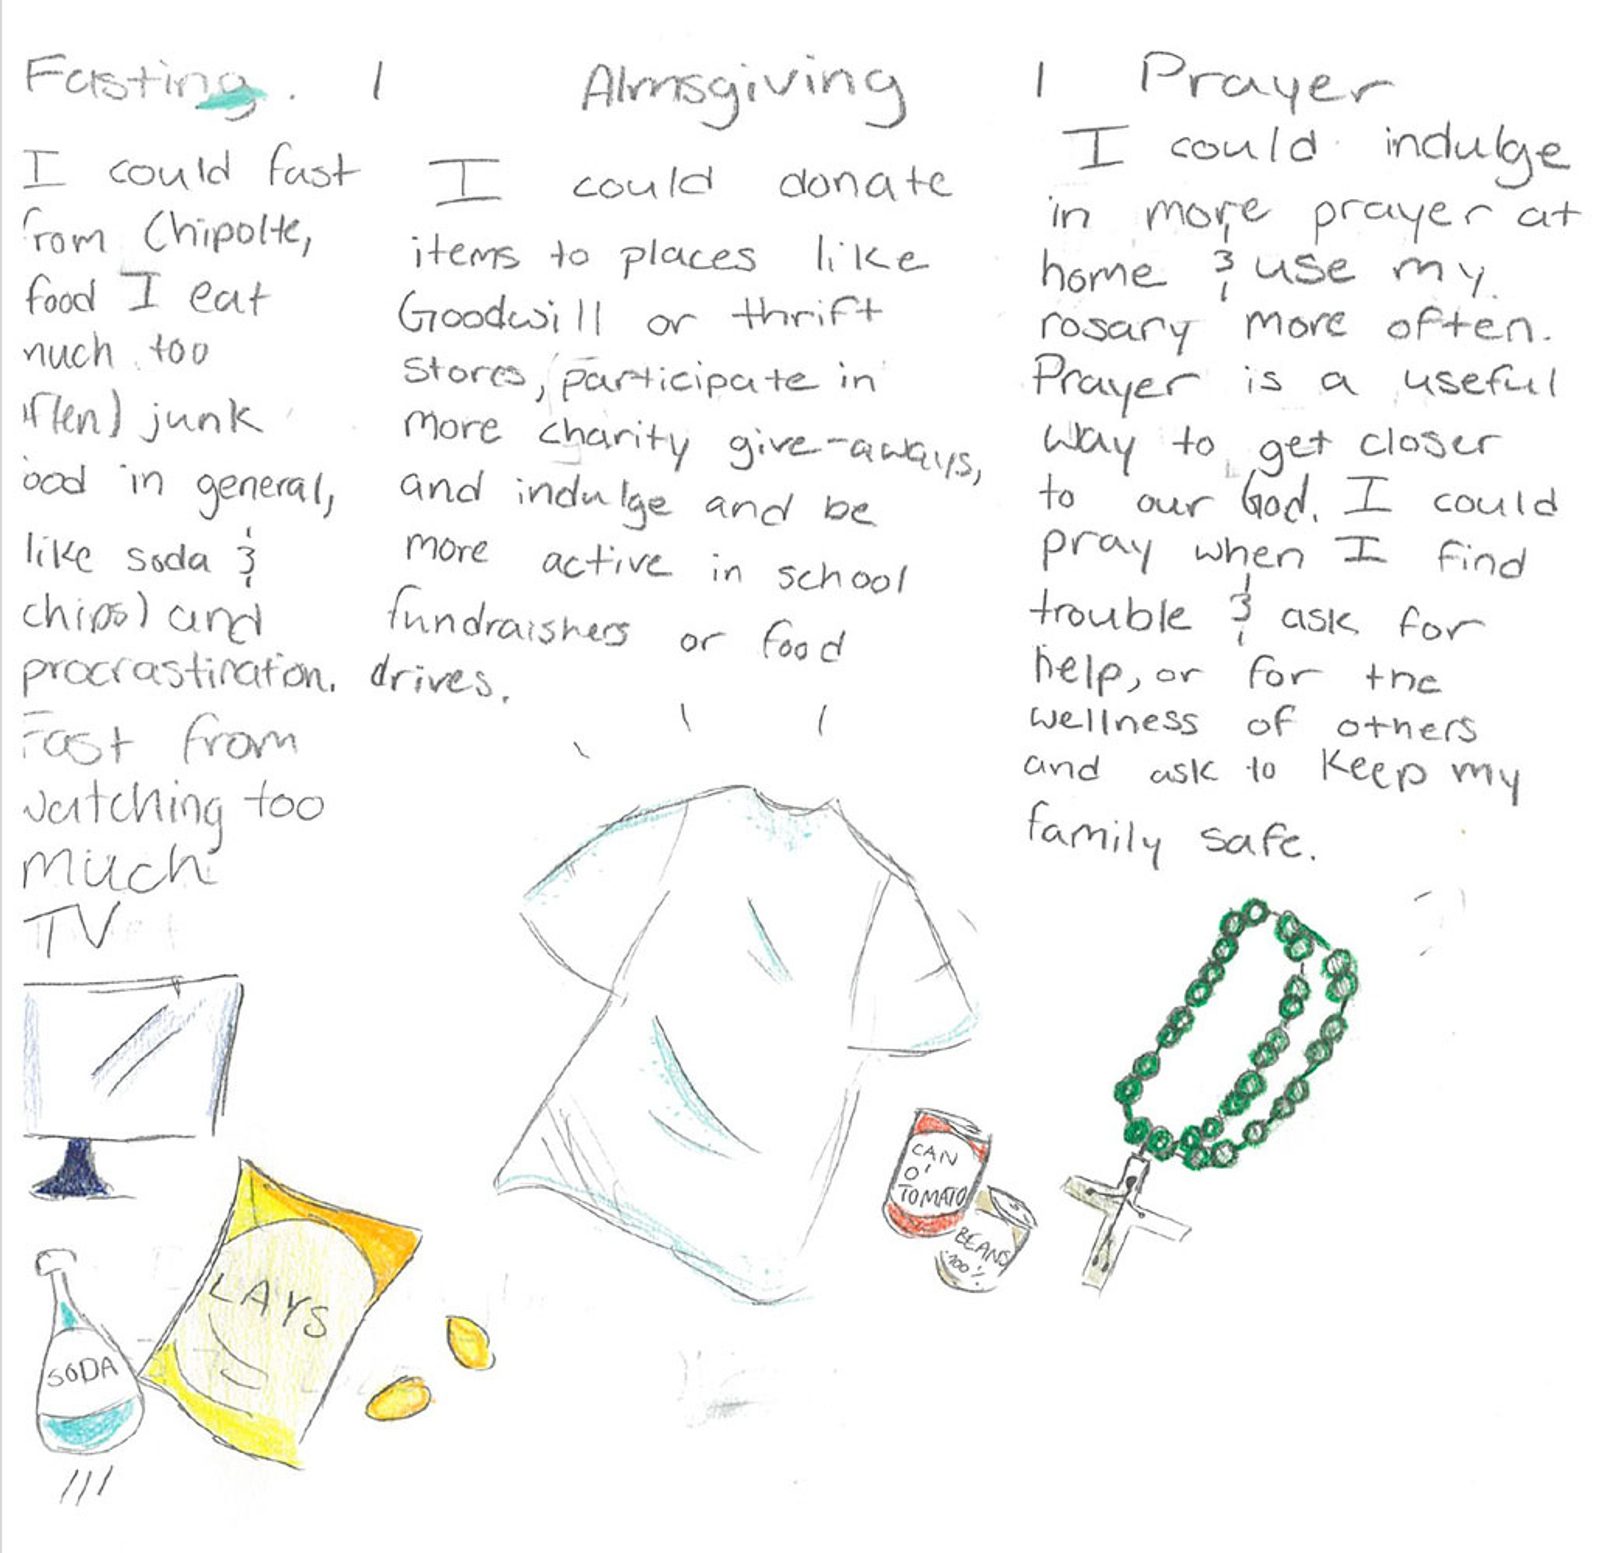 Fasting.
I could fast
from Chipolte,
food I eat
much too
often) junk
food in general,
like soda &
chips) and
procrastination.
Fast from
watching too
much
TV
SODA
LAYS
Almsgiving
I could donate
items to places like
Goodwill or thrift
stores, participate in
more charity give-aways,
and indulge and be
more active in school
fundraishers or food
drives.
CAN
O'
TOMATO
BEANS
100%
Prayer
I could indulge
in more prayer at
home & use my
rosary more often.
Prayer is a useful
way to get closer
to our God. I could
pray when I find
trouble & ask for
help, or for the
wellness of others
and ask to keep my
family safe.